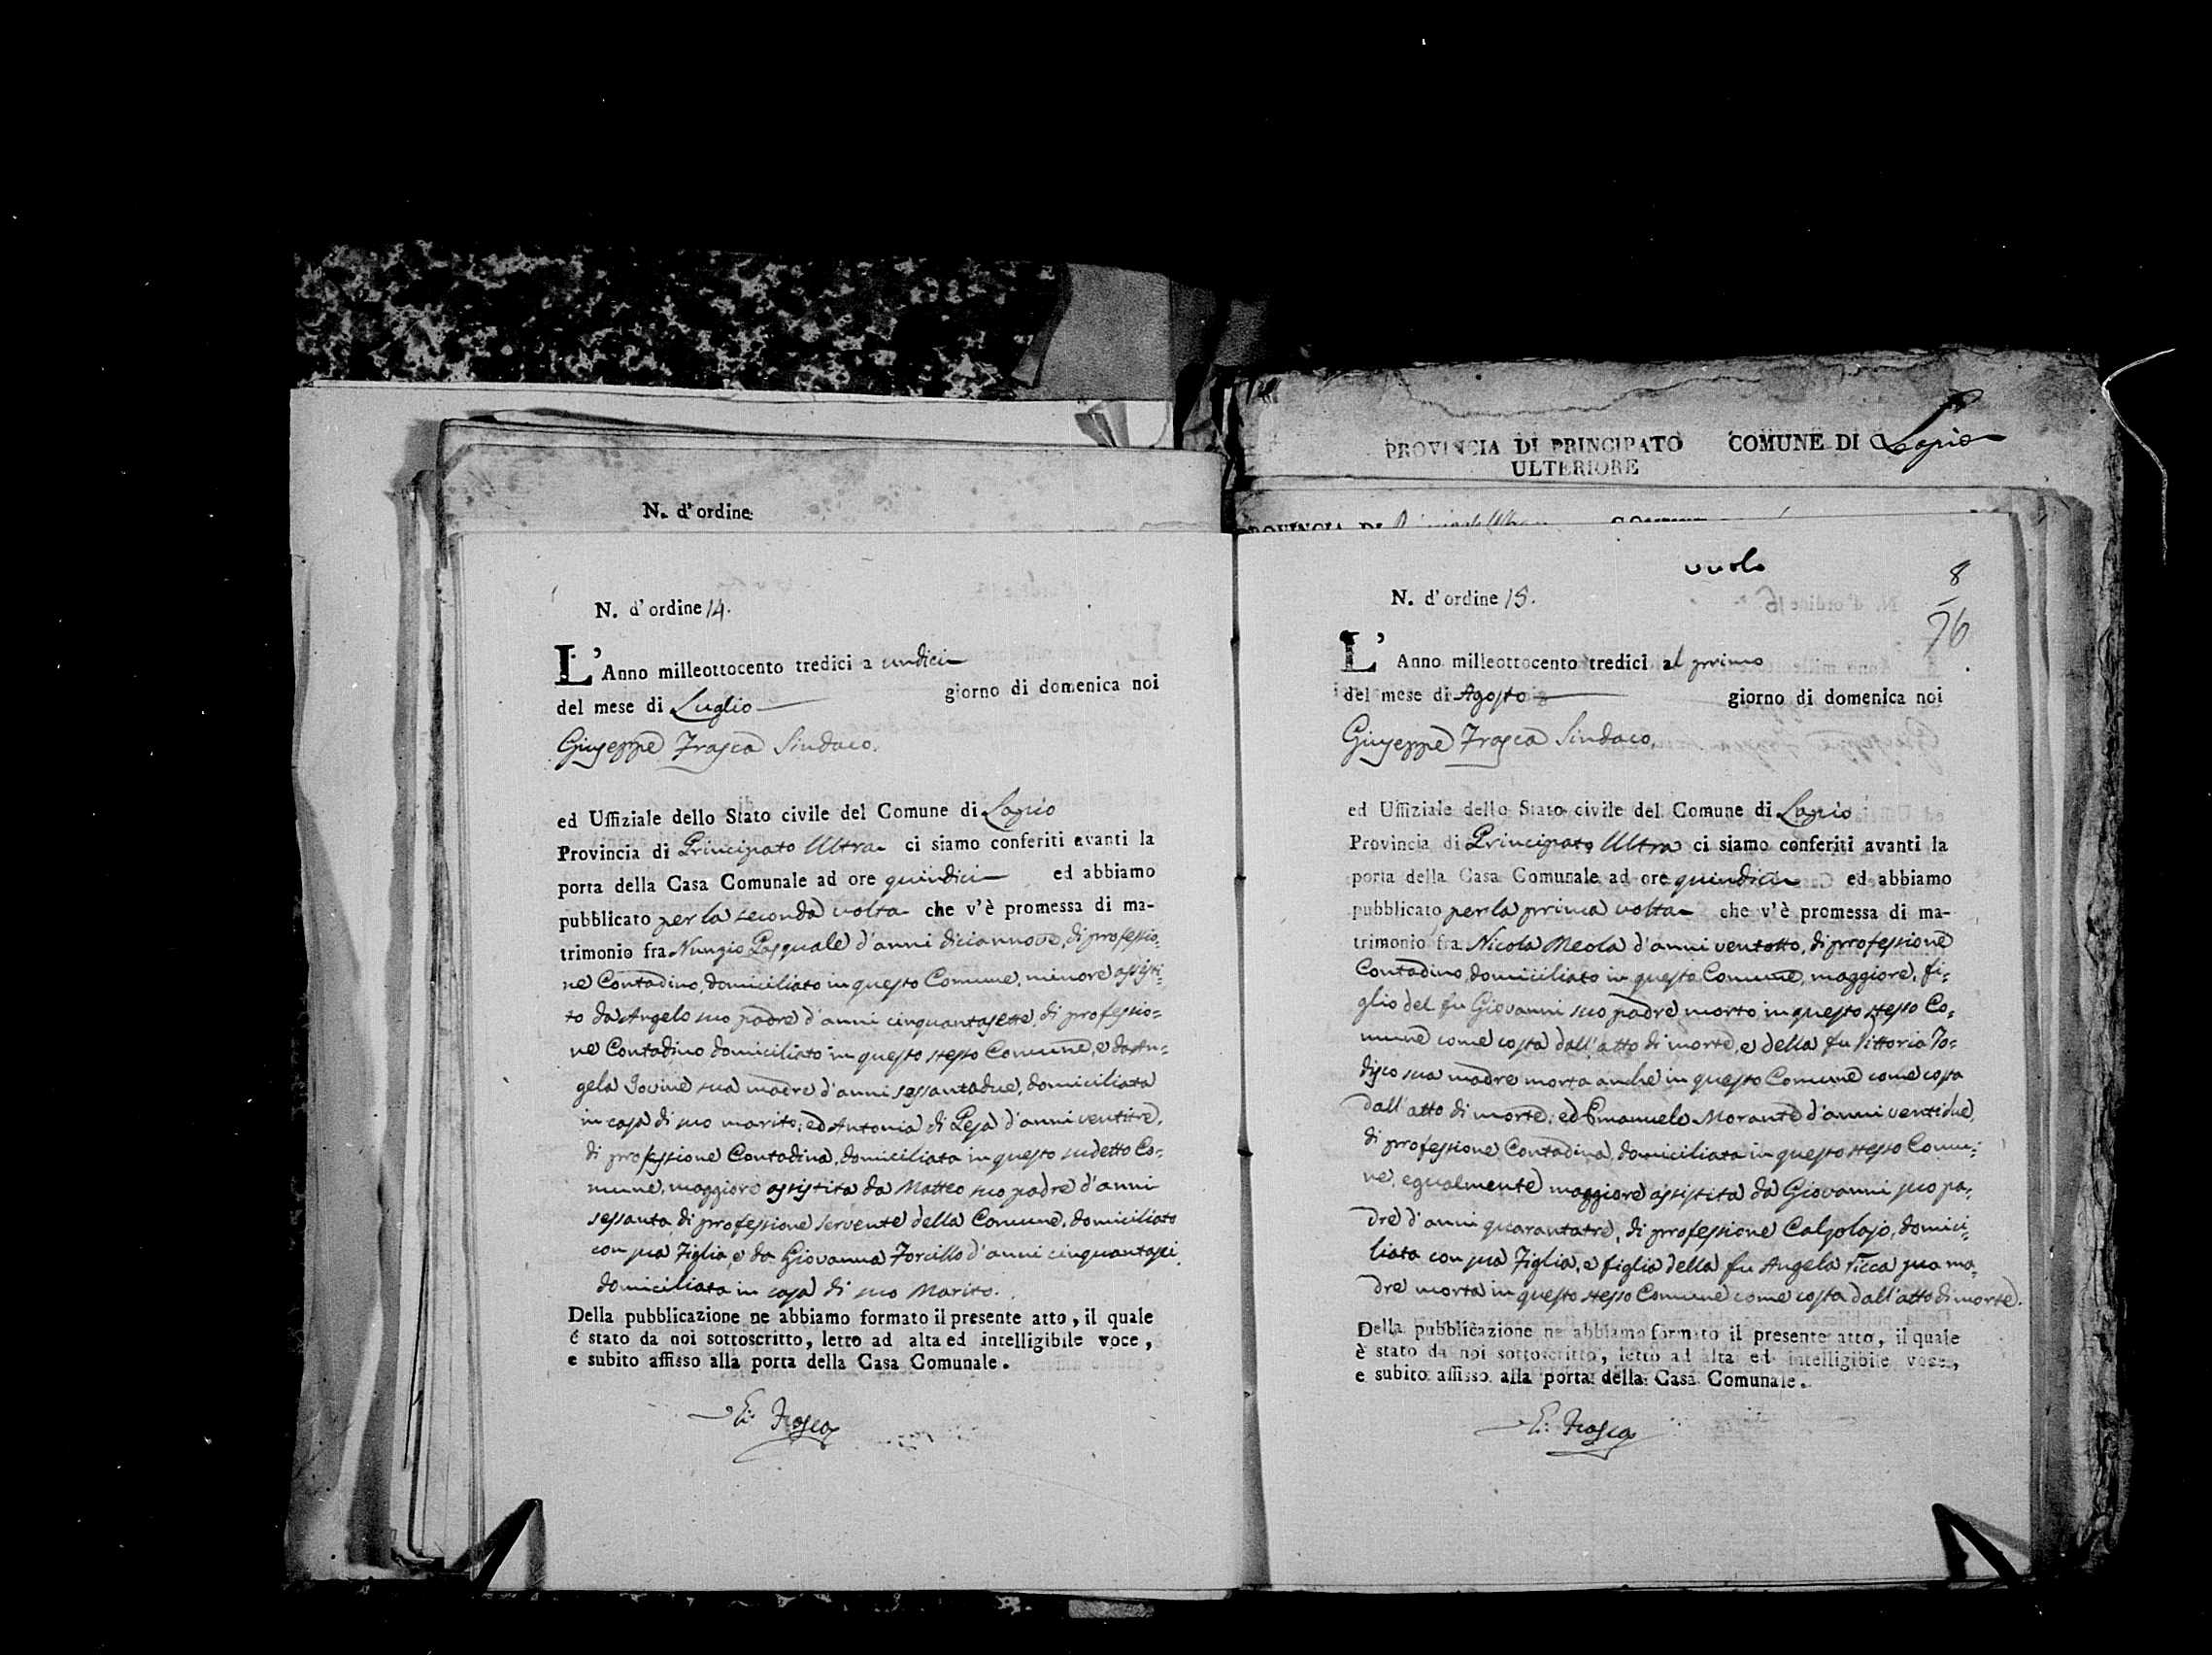 N. d'ordine
N. d'ordine 14.
L'Anno milleottocento tredici a undici
del mese di Luglio giorno di domenica noi
Giuseppe Frasca Sindaco.
ed Uffiziale dello Stato civile del Comune di Lapio
Provincia di Principato Ultra ci siamo conferiti avanti la
porta della Casa Comunale ad ore quindici ed abbiamo
pubblicato per la seconda volta che v'è promessa di ma-
trimonio fra Nunzio Pasquale d'anni diciannove, di professio-
ne Contadino, domiciliato in questo Comune, minore assisti-
to da Angelo suo padre d'anni cinquantasette, di professio=
ne Contadino domiciliato in questo stesso Comune, e da An=
gela Iovine sua madre d'anni sessantadue, domiciliata
in casa di suo marito; ed Antonia di Pesa d'anni ventitre,
di professione Contadina, domiciliata in questo sudetto Co=
mune, maggiore assistita da Matteo suo padre d'anni
sessanta di professione servente della Comune, domiciliato
con sua Figlia, e da Giovanna Forcillo d'anni cinquantasei
domiciliata in casa di suo Marito.
Della pubblicazione ne abbiamo formato il presente atto, il quale
é stato da noi sottoscritto, letto ad alta ed intelligibile voce,
e subito affisso alla porta della Casa Comunale.
G: Frasca
PROVINCIA DI PRINCIPATO COMUNE DI Lapio
ULTERIORE
PROVINCIA DI
vuolo
8
76
N. d'ordine 15.
L' Anno milleottocento tredici al primo
del mese di Agosto giorno di domenica noi
Giuseppe Frasca Sindaco,
ed Uffiziale dello Stato civile del Comune di Lapio
Provincia di Principato Ultra ci siamo conferiti avanti la
porta della Casa Comunale ad ore quindici ed abbiamo
pubblicato per la prima volta che v'è promessa di ma-
trimonio fra Nicola Meola d'anni ventotto, di professione
Contadino, domiciliato in questo Comune, maggiore, fi=
glio del fu Giovanni suo padre morto in questo stesso Co=
mune come costa dall'atto di morte, e della fu Vittoria Io=
disco sua madre morta anche in questo Comune come costa
dall'atto di morte; ed Emanuela Morante d'anni ventidue,
di professione Contadina, domiciliata in questo stesso Comu=
ne, egualmente maggiore assistita da Giovanni suo pa=
dre d'anni quarantatre, di professione Calzolajo, domici=
liato con sua Figlia, e figlia della fu Angela Ricca sua ma=
dre morta in questo stesso Comune come costa dall'atto di morte.
Della pubblicazione ne abbiamo formato il presente atto, il quale
è stato da noi sottoscritto, letto ad alta ed intelligibile voce,
e subito affisso alla porta della Casa Comunale.
G: Frasca